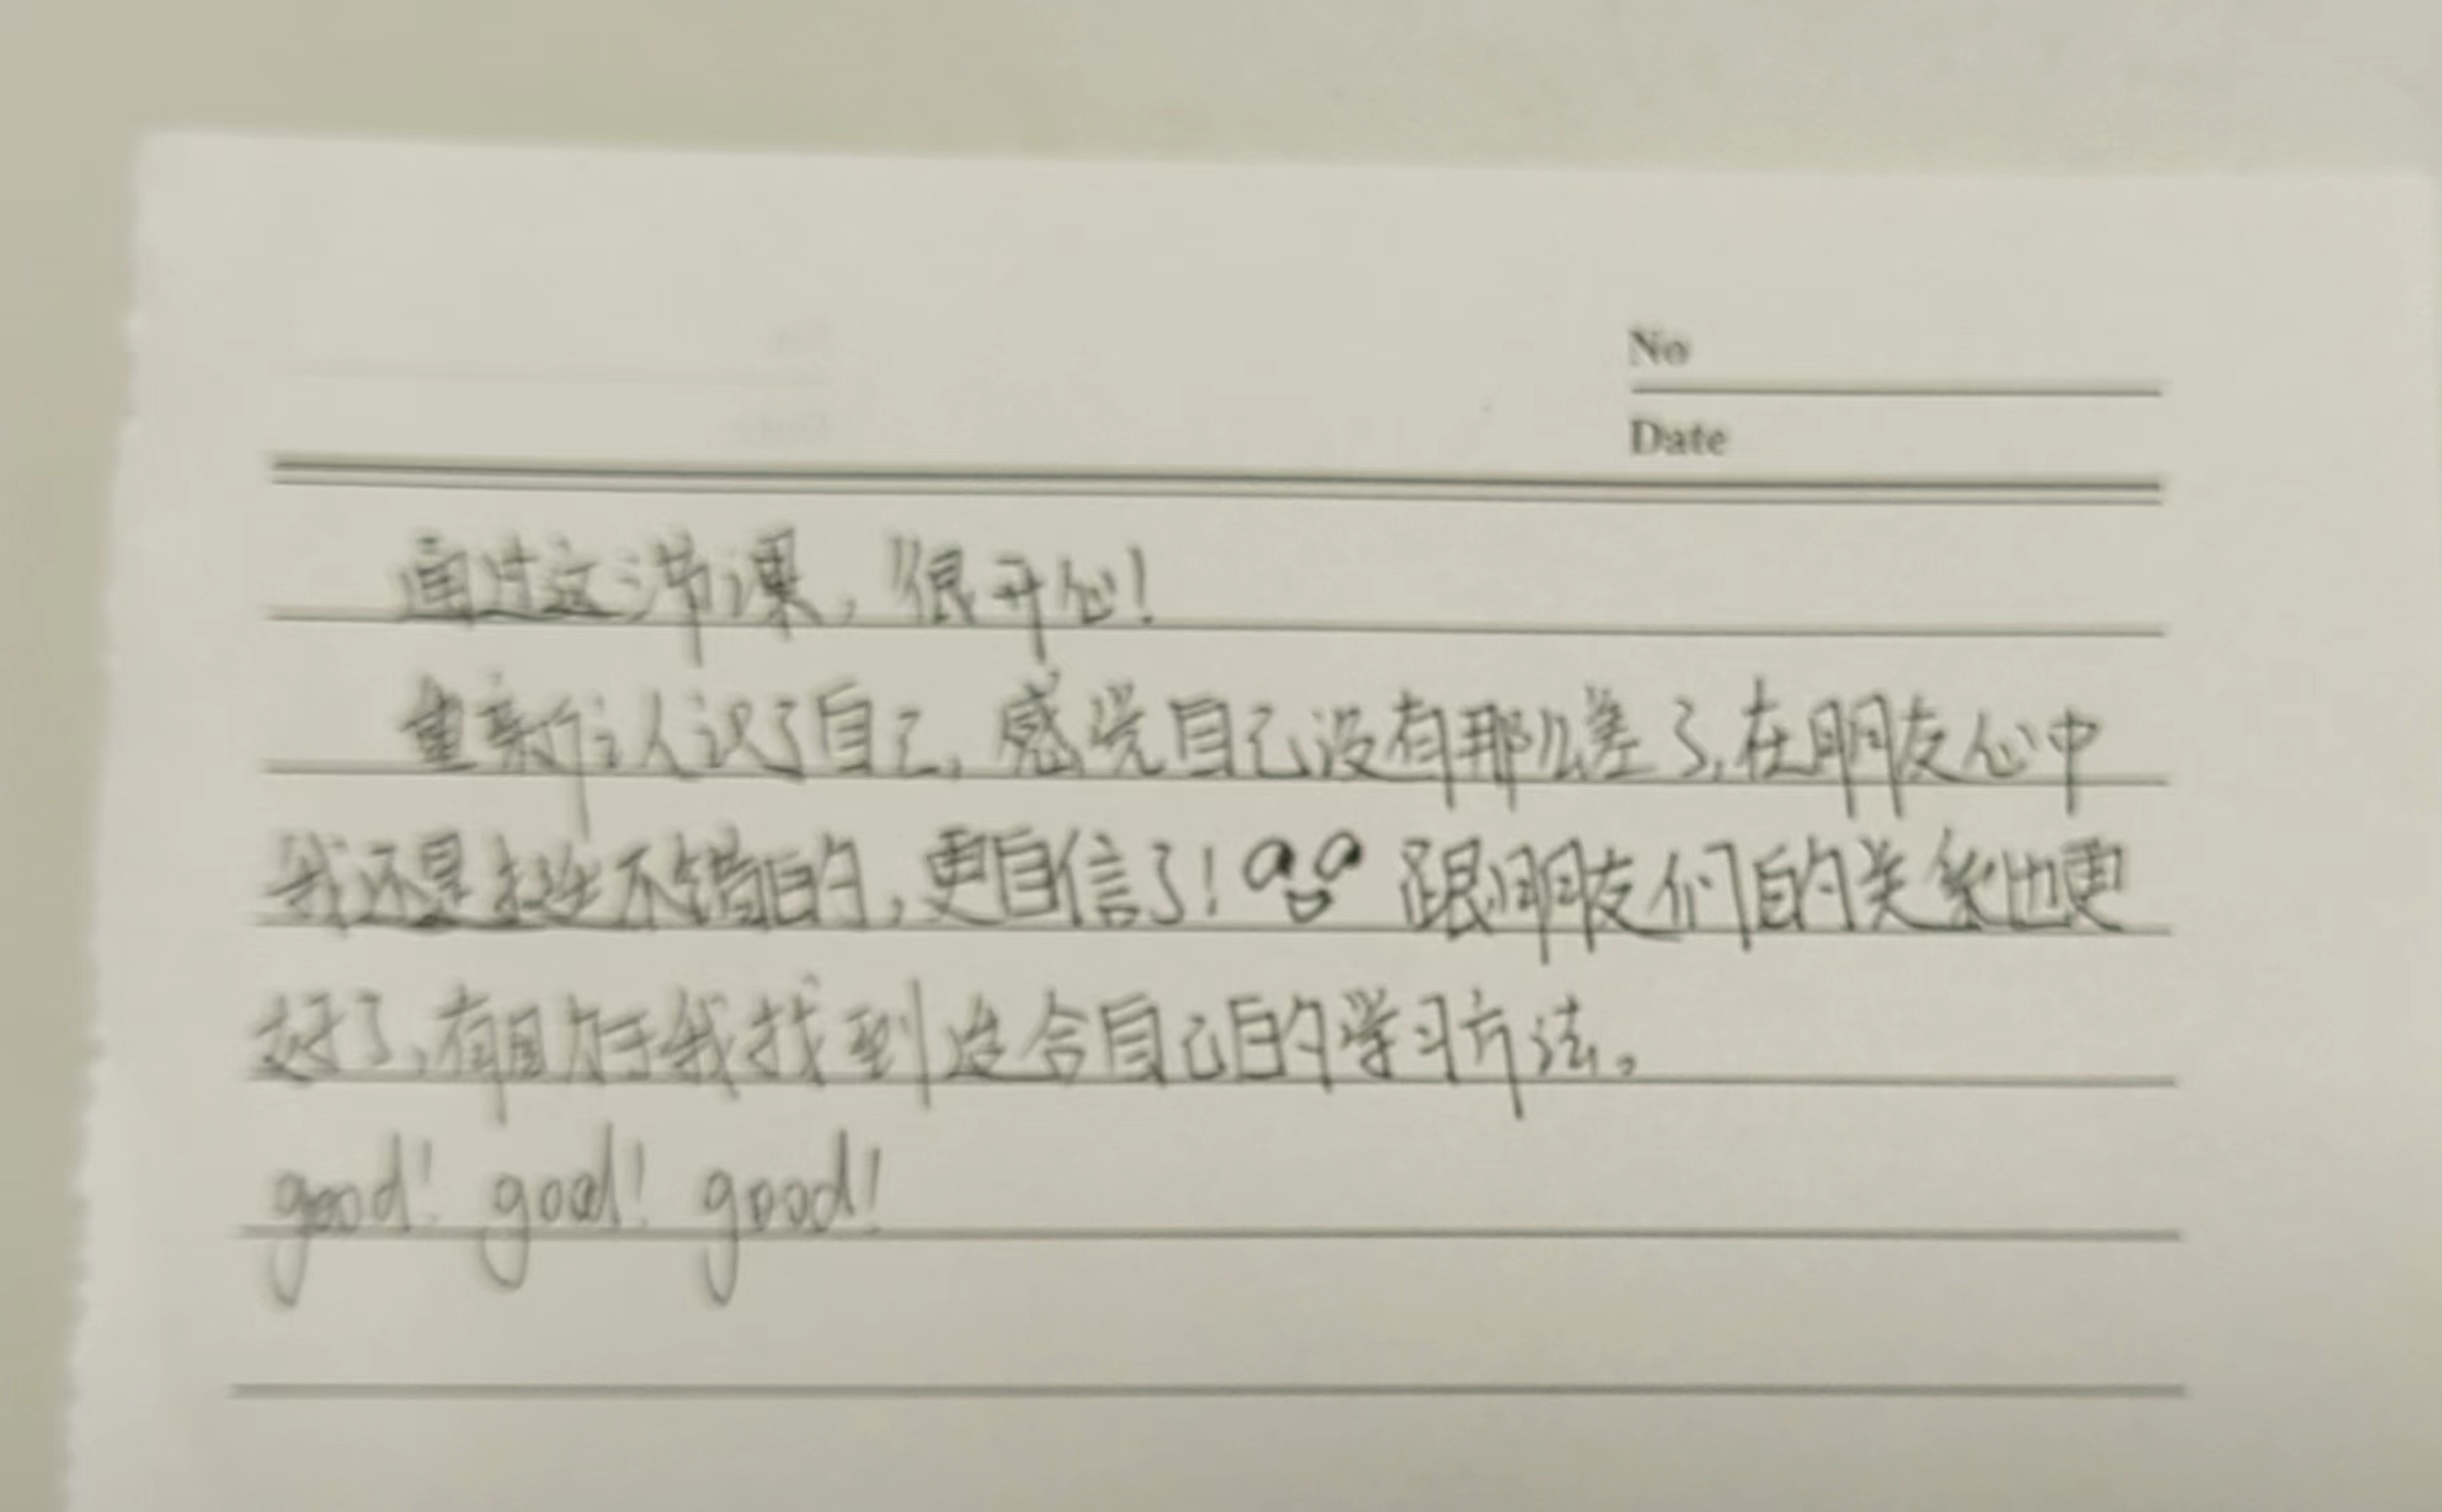 No
Date
通过这节课，很开心！
重新认识了自己，感觉自己没有那么差了，在朋友心中
我还是挺不错的，更自信了！跟朋友们的关系也更
好了，有助于我找到适合自己的学习方法。
good! good! good!